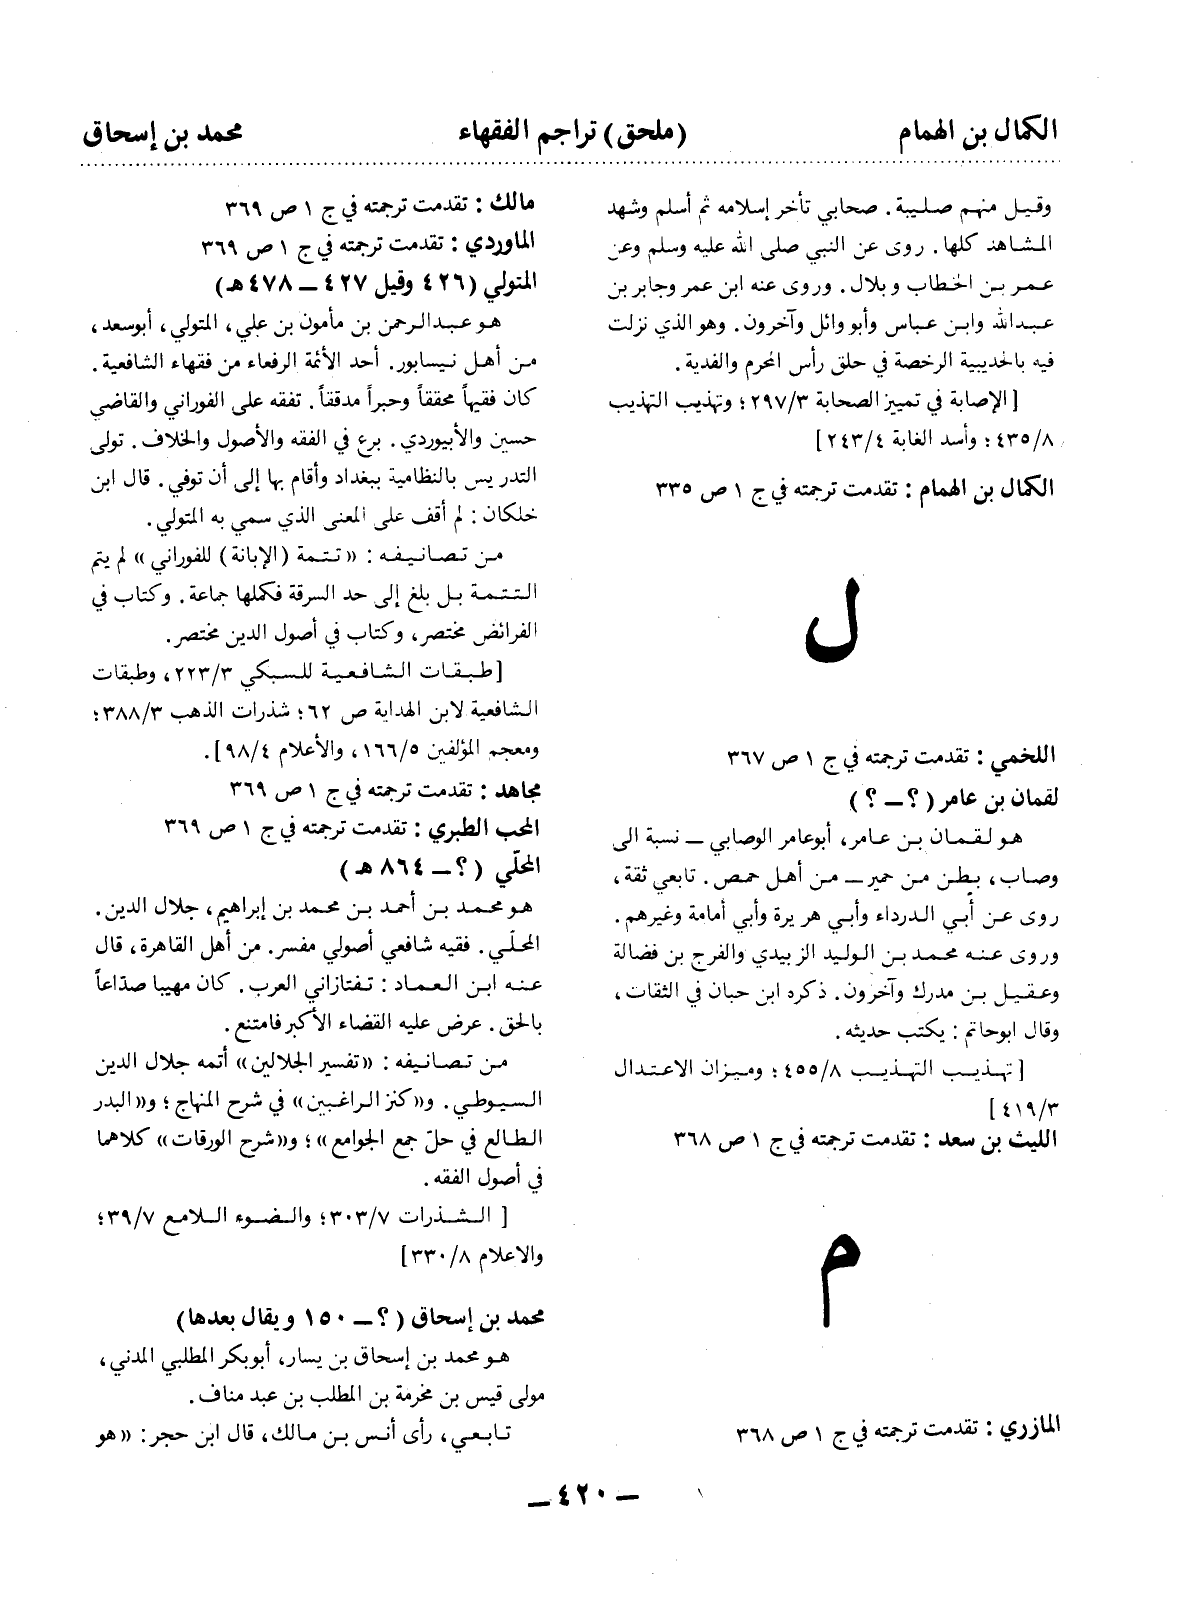 الكمال بن الهمام (ملحق) تراجم الفقهاء محمد بن إسحاق
وقيل منهم صليبة. صحابي تأخر إسلامه ثم أسلم وشهد
المشاهد كلها. روى عن النبي صلى الله عليه وسلم وعن
عمر بن الخطاب وبلال. وروى عنه ابن عمر وجابر بن
عبدالله وابن عباس وأبو وائل وآخرون. وهو الذي نزلت
فيه بالحديبية الرخصة في حلق رأس المحرم والفدية.
[الإصابة في تمييز الصحابة ٢٩٧/٣؛ وتهذيب التهذيب
٤٣٥/٨؛ وأسد الغابة ٢٤٣/٤]
الكمال بن الهمام : تقدمت ترجمته في ج ١ ص ٣٣٥
ل
اللخمي : تقدمت ترجمته في ج ١ ص ٣٦٧
لقمان بن عامر (؟ ـ ؟)
هو لقمان بن عامر، أبوعامر الوصابي ـ نسبة الى
وصاب، بطن من حمير ـ من أهل حمص. تابعي ثقة،
روى عن أبي الدرداء وأبي هريرة وأبي أمامة وغيرهم.
وروى عنه محمد بن الوليد الزبيدي والفرج بن فضالة
وعقيل بن مدرك وآخرون. ذكره ابن حبان في الثقات،
وقال ابوحاتم : يكتب حديثه.
[تهذيب التهذيب ٤٥٥/٨؛ وميزان الاعتدال
٤١٩/٣]
الليث بن سعد : تقدمت ترجمته في ج ١ ص ٣٦٨
م
المازري : تقدمت ترجمته في ج ١ ص ٣٦٨
مالك : تقدمت ترجمته في ج ١ ص ٣٦٩
الماوردي : تقدمت ترجمته في ج ١ ص ٣٦٩
المتولي (٤٢٦ وقيل ٤٢٧ ـ ٤٧٨ هـ)
هو عبدالرحمن بن مأمون بن علي، المتولي، أبوسعد،
من أهل نيسابور. أحد الأئمة الرفعاء من فقهاء الشافعية.
كان فقيهاً محققاً وحبراً مدققاً. تفقه على الفوراني والقاضي
حسين والأبيوردي. برع في الفقه والأصول والخلاف. تولى
التدريس بالنظامية ببغداد وأقام بها إلى أن توفي. قال ابن
خلكان : لم أقف على المعنى الذي سمي به المتولي.
من تصانيفه : «تتمة (الإبانة) للفوراني» لم يتم
التتمة بل بلغ إلى حد السرقة فكملها جماعة. وكتاب في
الفرائض مختصر، وكتاب في أصول الدين مختصر.
[طبقات الشافعية للسبكي ٢٢٣/٣، وطبقات
الشافعية لابن الهداية ص ٦٢؛ شذرات الذهب ٣٨٨/٣؛
ومعجم المؤلفين ١٦٦/٥، والأعلام ٩٨/٤].
مجاهد : تقدمت ترجمته في ج ١ ص ٣٦٩
المحب الطبري : تقدمت ترجمته في ج ١ ص ٣٦٩
المحلّي (؟ ـ ٨٦٤ هـ)
هو محمد بن أحمد بن محمد بن إبراهيم، جلال الدين.
المحلّي. فقيه شافعي أصولي مفسر. من أهل القاهرة، قال
عنه ابن العماد : تفتازاني العرب. كان مهيبا صدّاعاً
بالحق. عرض عليه القضاء الأكبر فامتنع.
من تصانيفه : «تفسير الجلالين» أتمه جلال الدين
السيوطي. و«كنز الراغبين» في شرح المنهاج؛ و«البدر
الطالع في حلّ جمع الجوامع»؛ و«شرح الورقات» كلاهما
في أصول الفقه.
[الشذرات ٣٠٣/٧؛ والضوء اللامع ٣٩/٧؛
والاعلام ٣٣٠/٨]
محمد بن إسحاق (؟ ـ ١٥٠ ويقال بعدها)
هو محمد بن إسحاق بن يسار، أبوبكر المطلبي المدني،
مولى قيس بن مخرمة بن المطلب بن عبد مناف.
تابعي، رأى أنس بن مالك، قال ابن حجر: «هو
ـ ٤٢٠ ـ